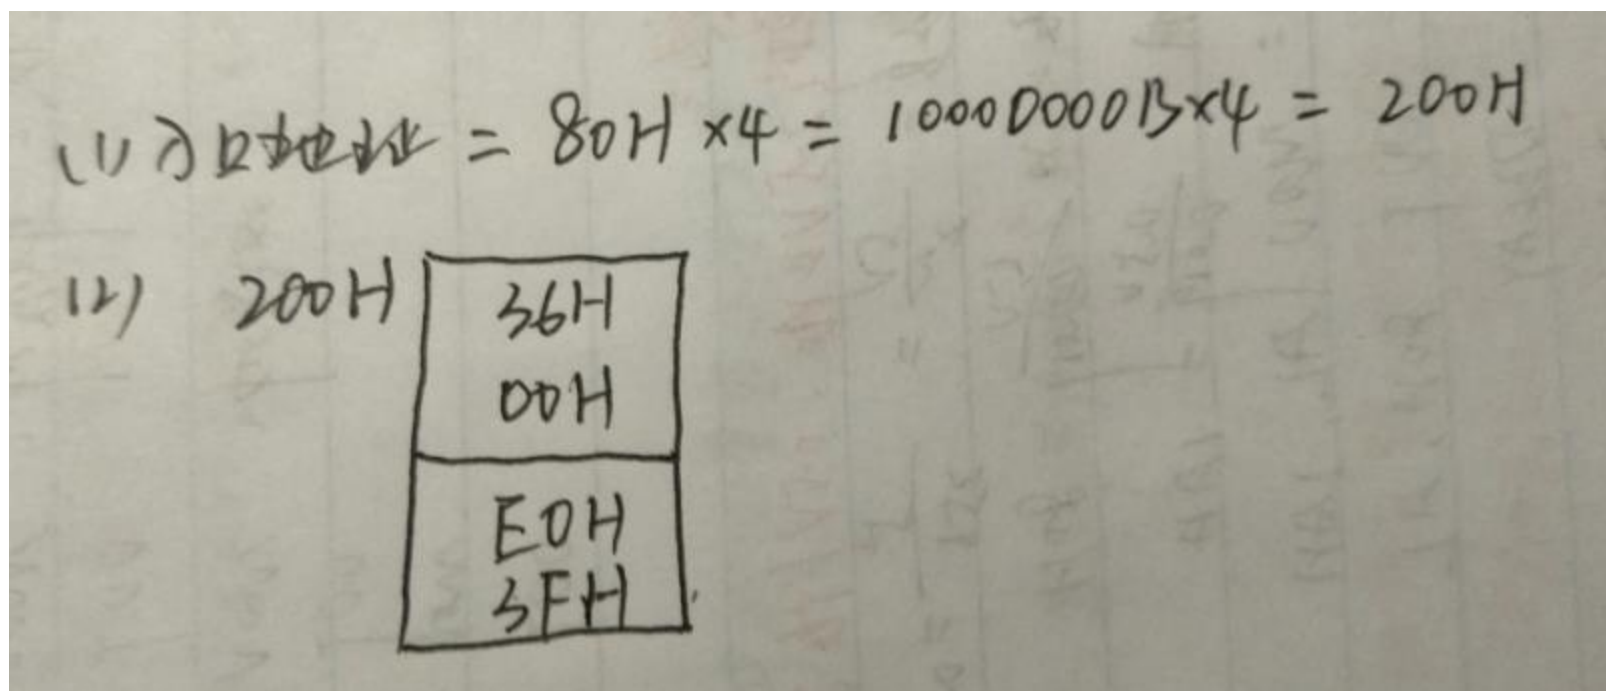 (1) 入口地址 = 80H×4 = 10000000B×4 = 200H
(2) 200H 36H
00H
E0H
3FH